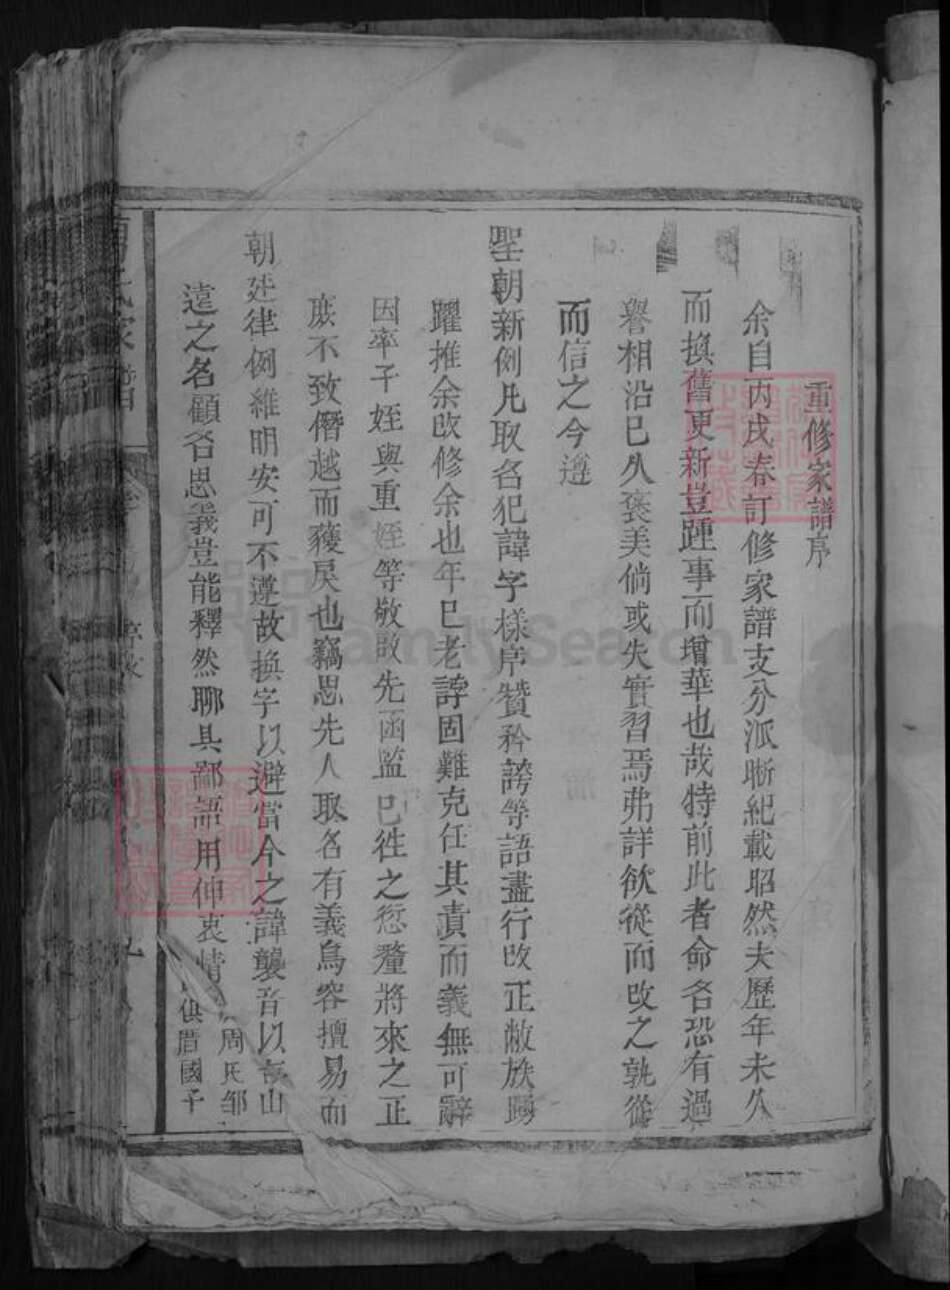 重修家譜序
余自丙戌春訂修家譜支分派晰紀載昭然夫歷年未久
而換舊更新豈踵事而增華也哉特前此者命名恐有過
譽相沿已久褒美倘或失實習焉弗詳欲從而改之孰從
而信之今遵
聖朝新例凡取名犯諱字樣序贊矜誇等語盡行改正敝族踴
躍推余改修余也年已老誖固難克任其責而義無可辭
因率子姪與重姪等敬啟先函監已徃之愆釐將來之正
庶不致僭越而獲戾也竊思先人取名有義烏容擅易而
朝廷律例維明安可不遵故換字以避當今之諱襲音以 山
遠之名顧名思義豈能釋然聊具鄙語用伸衷情
周氏邹
俱厝國子
FamilySearch